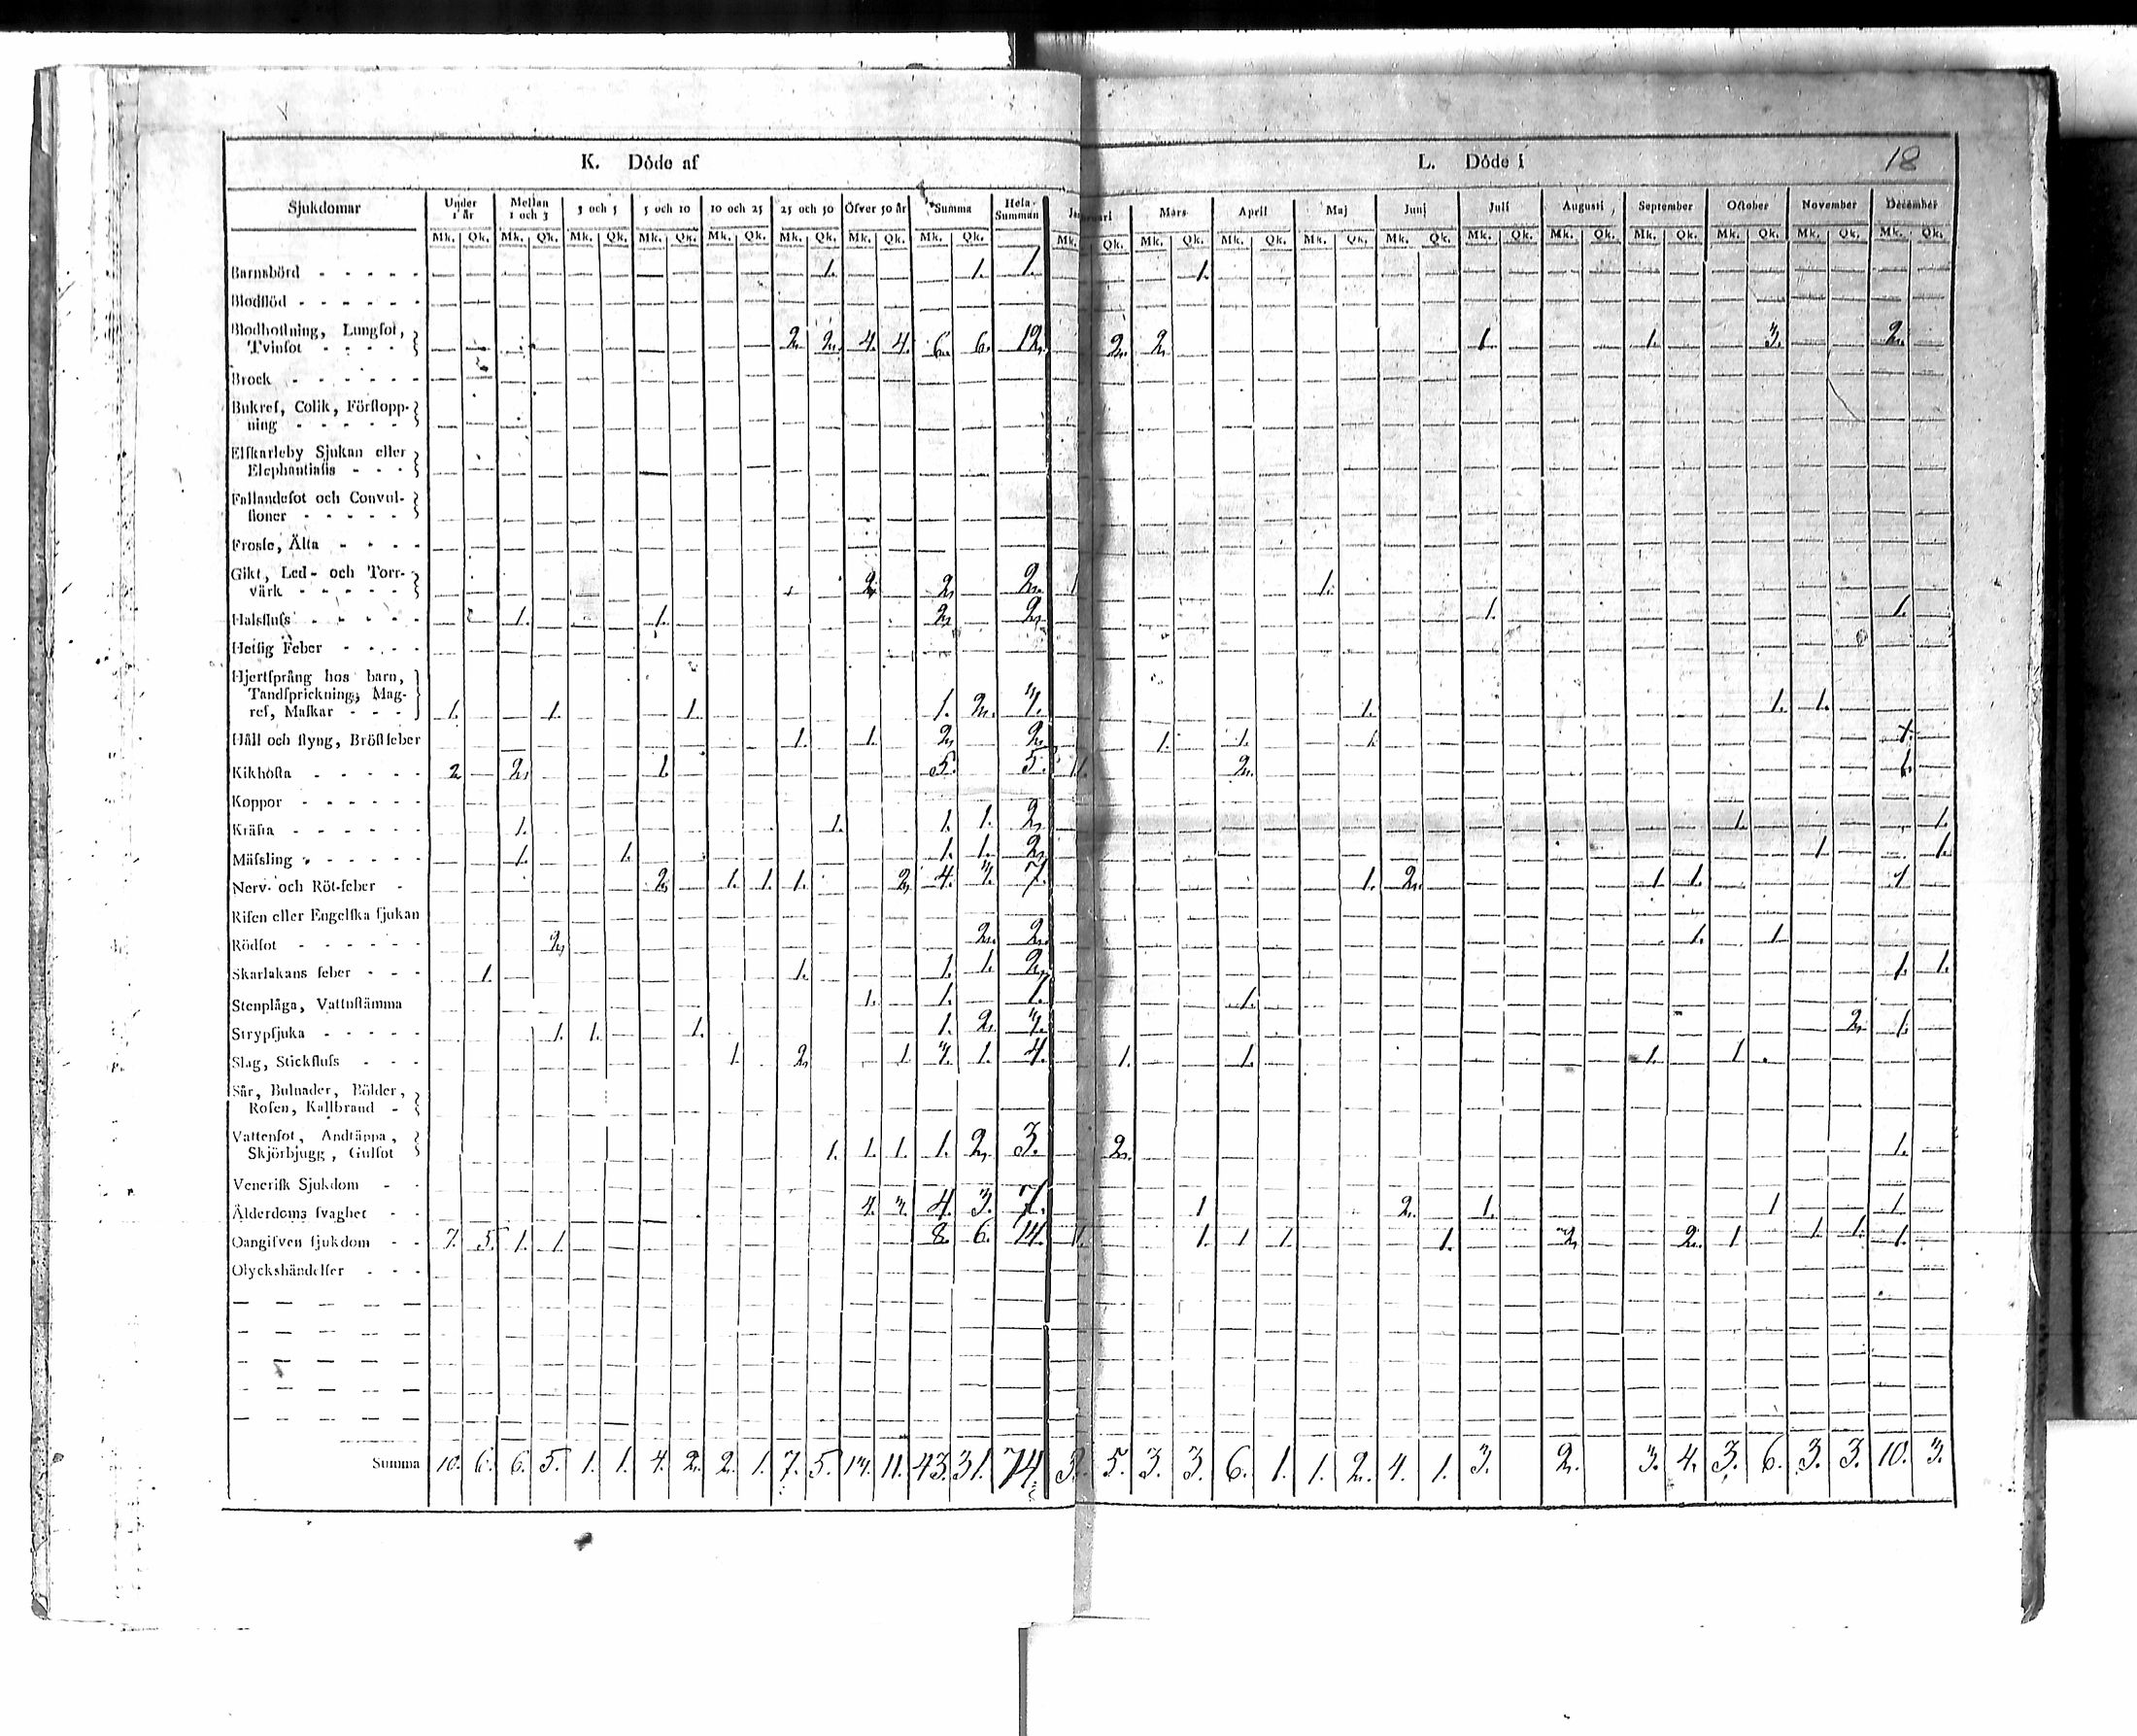 K. Döde af L. Döde i 18
Sjukdomar Under 1 år Mellan 1 och 3 3 och 5 5 och 10 10 och 25 25 och 50 Öfver 50 år Summa Hela Summan Mars April Maj Junj Juli Augusti September October November December
Mk. Qk. Mk. Qk. Mk. Qk. Mk. Qk. Mk. Qk. Mk. Qk. Mk. Qk. Mk. Qk. Mk. Qk. Mk. Qk. Mk. Qk. Mk. Qk. Mk. Qk. Mk. Qk. Mk. Qk. Mk. Qk. Mk. Qk. Mk. Qk. Mk. Qk.
Barnsbörd 1. 1. 1. 1.
Blodflöd
Blodhostning, Lungsot,
Tvinsot 2. 2. 4. 4. 6. 6. 12. 2. 2. 1. 1. 3. 2.
Brock
Bukref, Colik, Förstopp-
ning
Elfkarleby Sjukan eller
Elephantiasis
Fallandesot och Convul-
sioner
Frossa, Älta
Gikt, Led- och Torr-
värk 2. 2. 2. 1 1.
Halsfluss 1. 1. 2. 2. 1. 1.
Hetsig Feber
Hjertsprång hos barn,
Tandsprickning, Mag-
ref, Maskar 1. 1. 1. 1. 2. 3. 1. 1. 1.
Håll och styng, Bröstfeber 1. 1. 2. 2. 1. 1.
Kikhosta 2 2. 1. 5. 5. 1. 2. 1.
Koppor
Kräfta 1. 1. 1. 1. 2. 1. 1.
Mässling 1. 1. 1. 1. 2. 1. 1.
Nerv- och Röt-feber 2. 1. 1. 1. 2. 4. 3. 7. 1. 2. 1. 1. 1
Risen eller Engelska sjukan
Rödsot 2. 2. 2. 1. 1.
Skarlakans feber 1. 1. 1. 1. 2. 1. 1.
Stenplåga, Vattustämma 1. 1. 1. 1.
Strypsjuka 1. 1. 1. 1. 2. 3. 2. 1.
Slag, Stickfluss 1. 2. 1 3. 1. 4. 1. 1. 1. 1.
Sår, Bulnader, Bölder,
Rosen, Kallbrand
Vattensot, Andtäppa,
Skjörbjugg, Gulsot 1. 1. 1. 1. 2. 3. 2. 1.
Venerisk Sjukdom
Ålderdoms svaghet 4. 3. 4. 3. 7. 1 2. 1. 1 1.
Oangifven sjukdom 7. 5. 1. 1. 8. 6. 14. 1. 1. 1 1 1. 2. 2. 1 1. 1. 1.
Olyckshändelser
Summa 10. 6. 6. 5. 1. 1. 4. 2. 2. 1. 7. 5. 13. 11. 43. 31. 74. 3. 5. 3. 3. 6. 1. 1. 2. 4. 1. 3. 2. 3. 4. 3. 6. 3. 3. 10. 3.